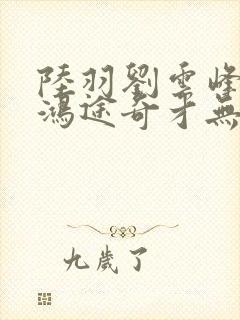 陸羽劉雲峰
鴻途奇才無
九歲了